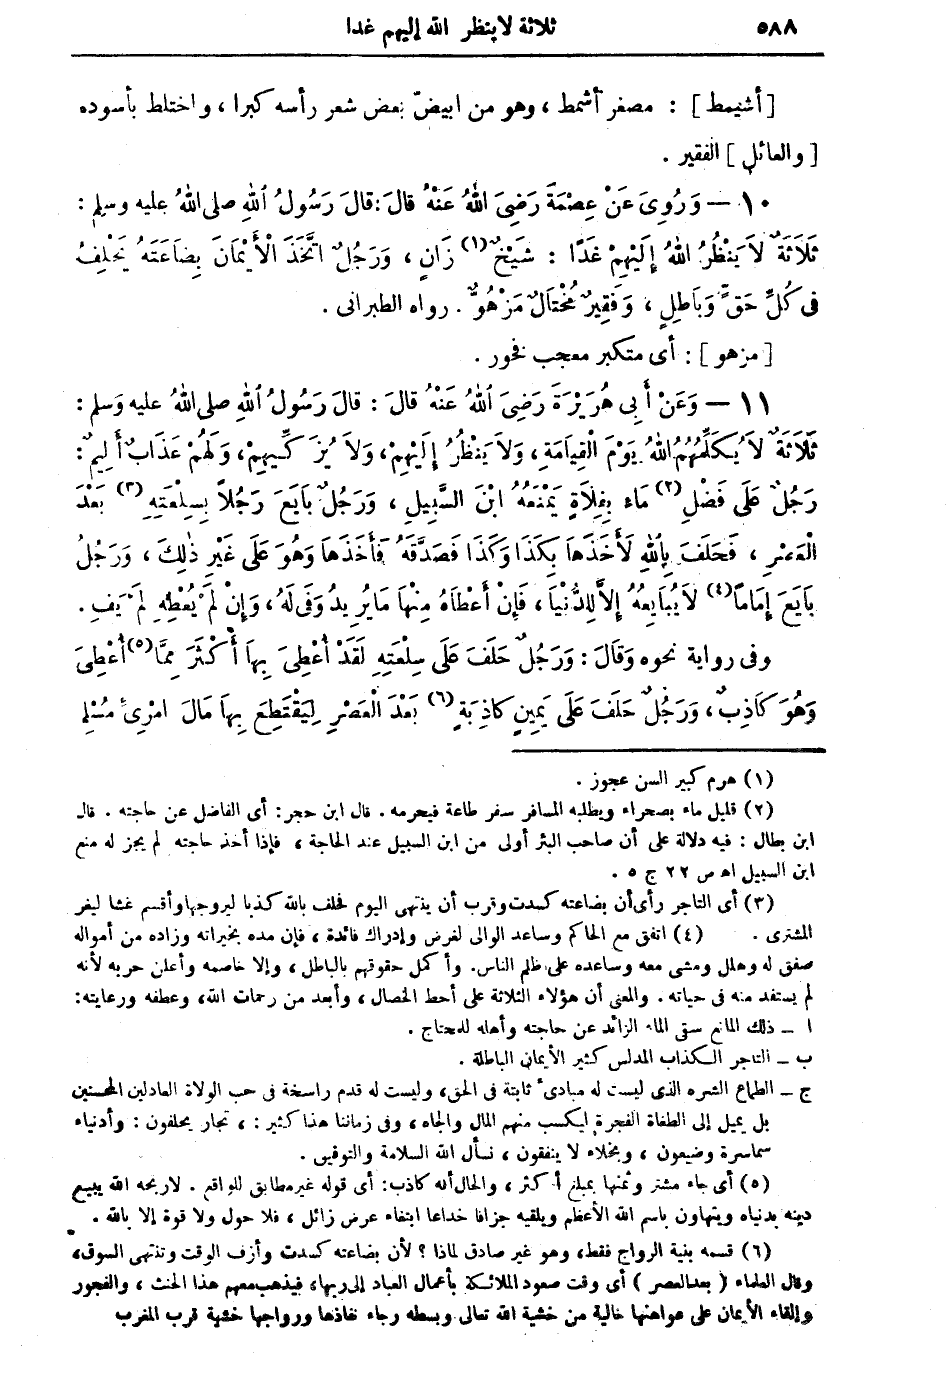 ٥٨٨ ثلاثة لا ينظر الله إليهم غدا
[أشيمط] : مصغر أشمط ، وهو من ابيضّ بعض شعر رأسه كبرا ، واختلط بأسوده
[والعائل] الفقير .
١٠ — وَرُوِىَ عَنْ عِصْمَةَ رَضِىَ اللهُ عَنْهُ قالَ: قالَ رَسُولُ اللهِ صلى اللهُ عليه وسلم :
ثَلَاثَةٌ لاَ يَنْظُرُ اللهُ إِلَيْهِمْ غَدًا : شَيْخٌ (١) زَانٍ ، وَرَجُلٌ اتَّخَذَ الْأَيْمَانَ بِضَاعَتَهُ يَحْلِفُ
فى كُلِّ حَقٍّ وَبَاطِلٍ ، وَفَقِيرٌ مُخْتَالٌ مَزْهُوٌّ . رواه الطبرانى .
[مزهو] : أى متكبر معجب فخور .
١١ — وَعَنْ أَبِى هُرَيْرَةَ رَضِىَ اللهُ عَنْهُ قالَ : قالَ رَسُولُ اللهِ صلى اللهُ عليه وَسلم :
ثَلَاثَةٌ لاَ يُكَلِّمُهُمُ اللهُ يَوْمَ الْقِيَامَةِ، وَلاَ يَنْظُرُ إِلَيْهِمْ، وَلاَ يُزَكِّيهِمْ، وَلَهُمْ عَذَابٌ أَلِيمٌ :
رَجُلٌ عَلَى فَضْلِ (٢) مَاءٍ بِفَلاَةٍ يَمْنَعُهُ ابْنَ السَّبِيلِ ، وَرَجُلٌ بَايَعَ رَجُلاً بِسِلْعَتِهِ (٣) بَعْدَ
الْعَصْرِ ، فَحَلَفَ بِاللهِ لَأَخَذَهَا بِكَذَا وَكَذَا فَصَدَّقَهُ فَأَخَذَهَا وَهُوَ عَلَى غَيْرِ ذٰلِكَ ، وَرَجُلٌ
بَايَعَ إِمَاماً (٤) لاَ يُبَايِعُهُ إِلاَّ لِلدُّنْيَا ، فَإِنْ أَعْطَاهُ مِنْهَا مَا يُرِيدُ وَفَى لَهُ ، وَإِنْ لَمْ يُعْطِهِ لَمْ يَفِ .
وفى رواية نحوه وَقَالَ : وَرَجُلٌ حَلَفَ عَلَى سِلْعَتِهِ لَقَدْ أُعْطِىَ بِهَا أَكْثَرَ مِمَّا (٥) أُعْطِىَ
وَهُوَ كَاذِبٌ ، وَرَجُلٌ حَلَفَ عَلَى يَمِينٍ كَاذِبَةٍ (٦) بَعْدَ الْعَصْرِ لِيَقْتَطِعَ بِهَا مَالَ امْرِئٍ مُسْلِمٍ
(١) هرم كبير السن عجوز .
(٢) قليل ماء بصحراء ويطلبه المسافر سفر طاعة فيحرمه . قال ابن حجر : أى الفاضل عن حاجته . قال
ابن بطال : فيه دلالة على أن صاحب البئر أولى من ابن السبيل عند الحاجة ، فإذا أخذ حاجته لم يجز له منع
ابن السبيل اه ص ٢٢ ج ٥ .
(٣) أى التاجر رأى أن بضاعته كسدت وقرب أن ينتهى اليوم فحلف بالله كذبا ليروجها وأقسم غشا ليغر
المشترى . (٤) اتفق مع الحاكم وساعد الوالى لغرض وإدراك فائدة ، فإن مده بخيراته وزاده من أمواله
صفق له وهلل ومشى معه وساعده على ظلم الناس. وأكل حقوقهم بالباطل ، وإلا خاصمه وأعلن حربه لأنه
لم يستفد منه فى حياته . والمعنى أن هؤلاء الثلاثة على أحط الخصال ، وأبعد من رحمات الله، وعطفه ورعايته:
ا — ذلك المانع سقى الماء الزائد عن حاجته وأهله للمحتاج .
ب — التاجر الكذاب المدلس كثير الأيمان الباطلة .
ج — الطماع الشره الذى ليست له مبادئ ثابتة فى الحق، وليست له قدم راسخة فى حب الولاة العادلين المحسنين
بل يميل إلى الطغاة الفجرة ليكسب منهم المال والجاه ، وفى زماننا هذا كثير : ، تجار يحلفون : وأدنياء
سماسرة وضيعون ، وبخلاء لا ينفقون ، نسأل الله السلامة والتوفيق .
(٥) أى جاء مشتر وثمنها بمبلغ أكثر ، والحال أنه كاذب: أى قوله غير مطابق للواقع . لا ربحه الله يبيع
دينه بدنياه ويتهاون باسم الله الأعظم ويلقيه جزافا خداعا ابتغاء عرض زائل ، فلا حول ولا قوة إلا بالله .
(٦) قسمه بنية الرواج فقط، وهو غير صادق لماذا ؟ لأن بضاعته كسدت وأزف الوقت وتنتهى السوق،
وقال العلماء ( بعد العصر ) أى وقت صعود الملائكة بأعمال العباد إلى ربها، فيذهب معهم هذا الحنث ، والفجور
وإلقاء الأيمان على عواهنها خالية من خشية الله تعالى وبسطه رجاء نفاذها ورواجها خشية قرب المغرب